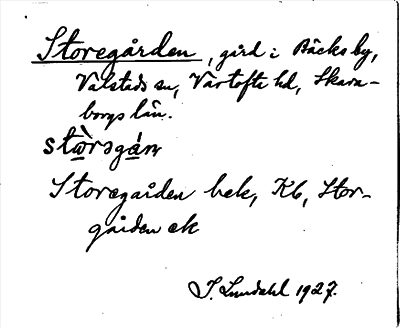 Storegården, gård i Bäcks by,
Valstads sn, Vartofta hd, Skara-
borgs län.
stòrsgán
Storegården bek, Kb, Stor-
gården ek
J. Lundahl 1927.